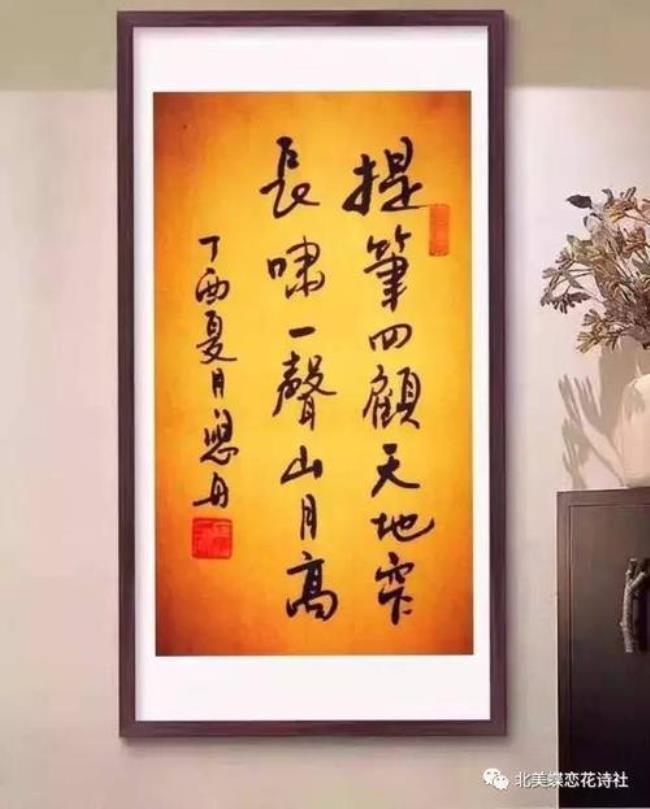 提筆四顧天地窄
長嘯一聲山月高
丁酉夏月
北美蝶恋花诗社